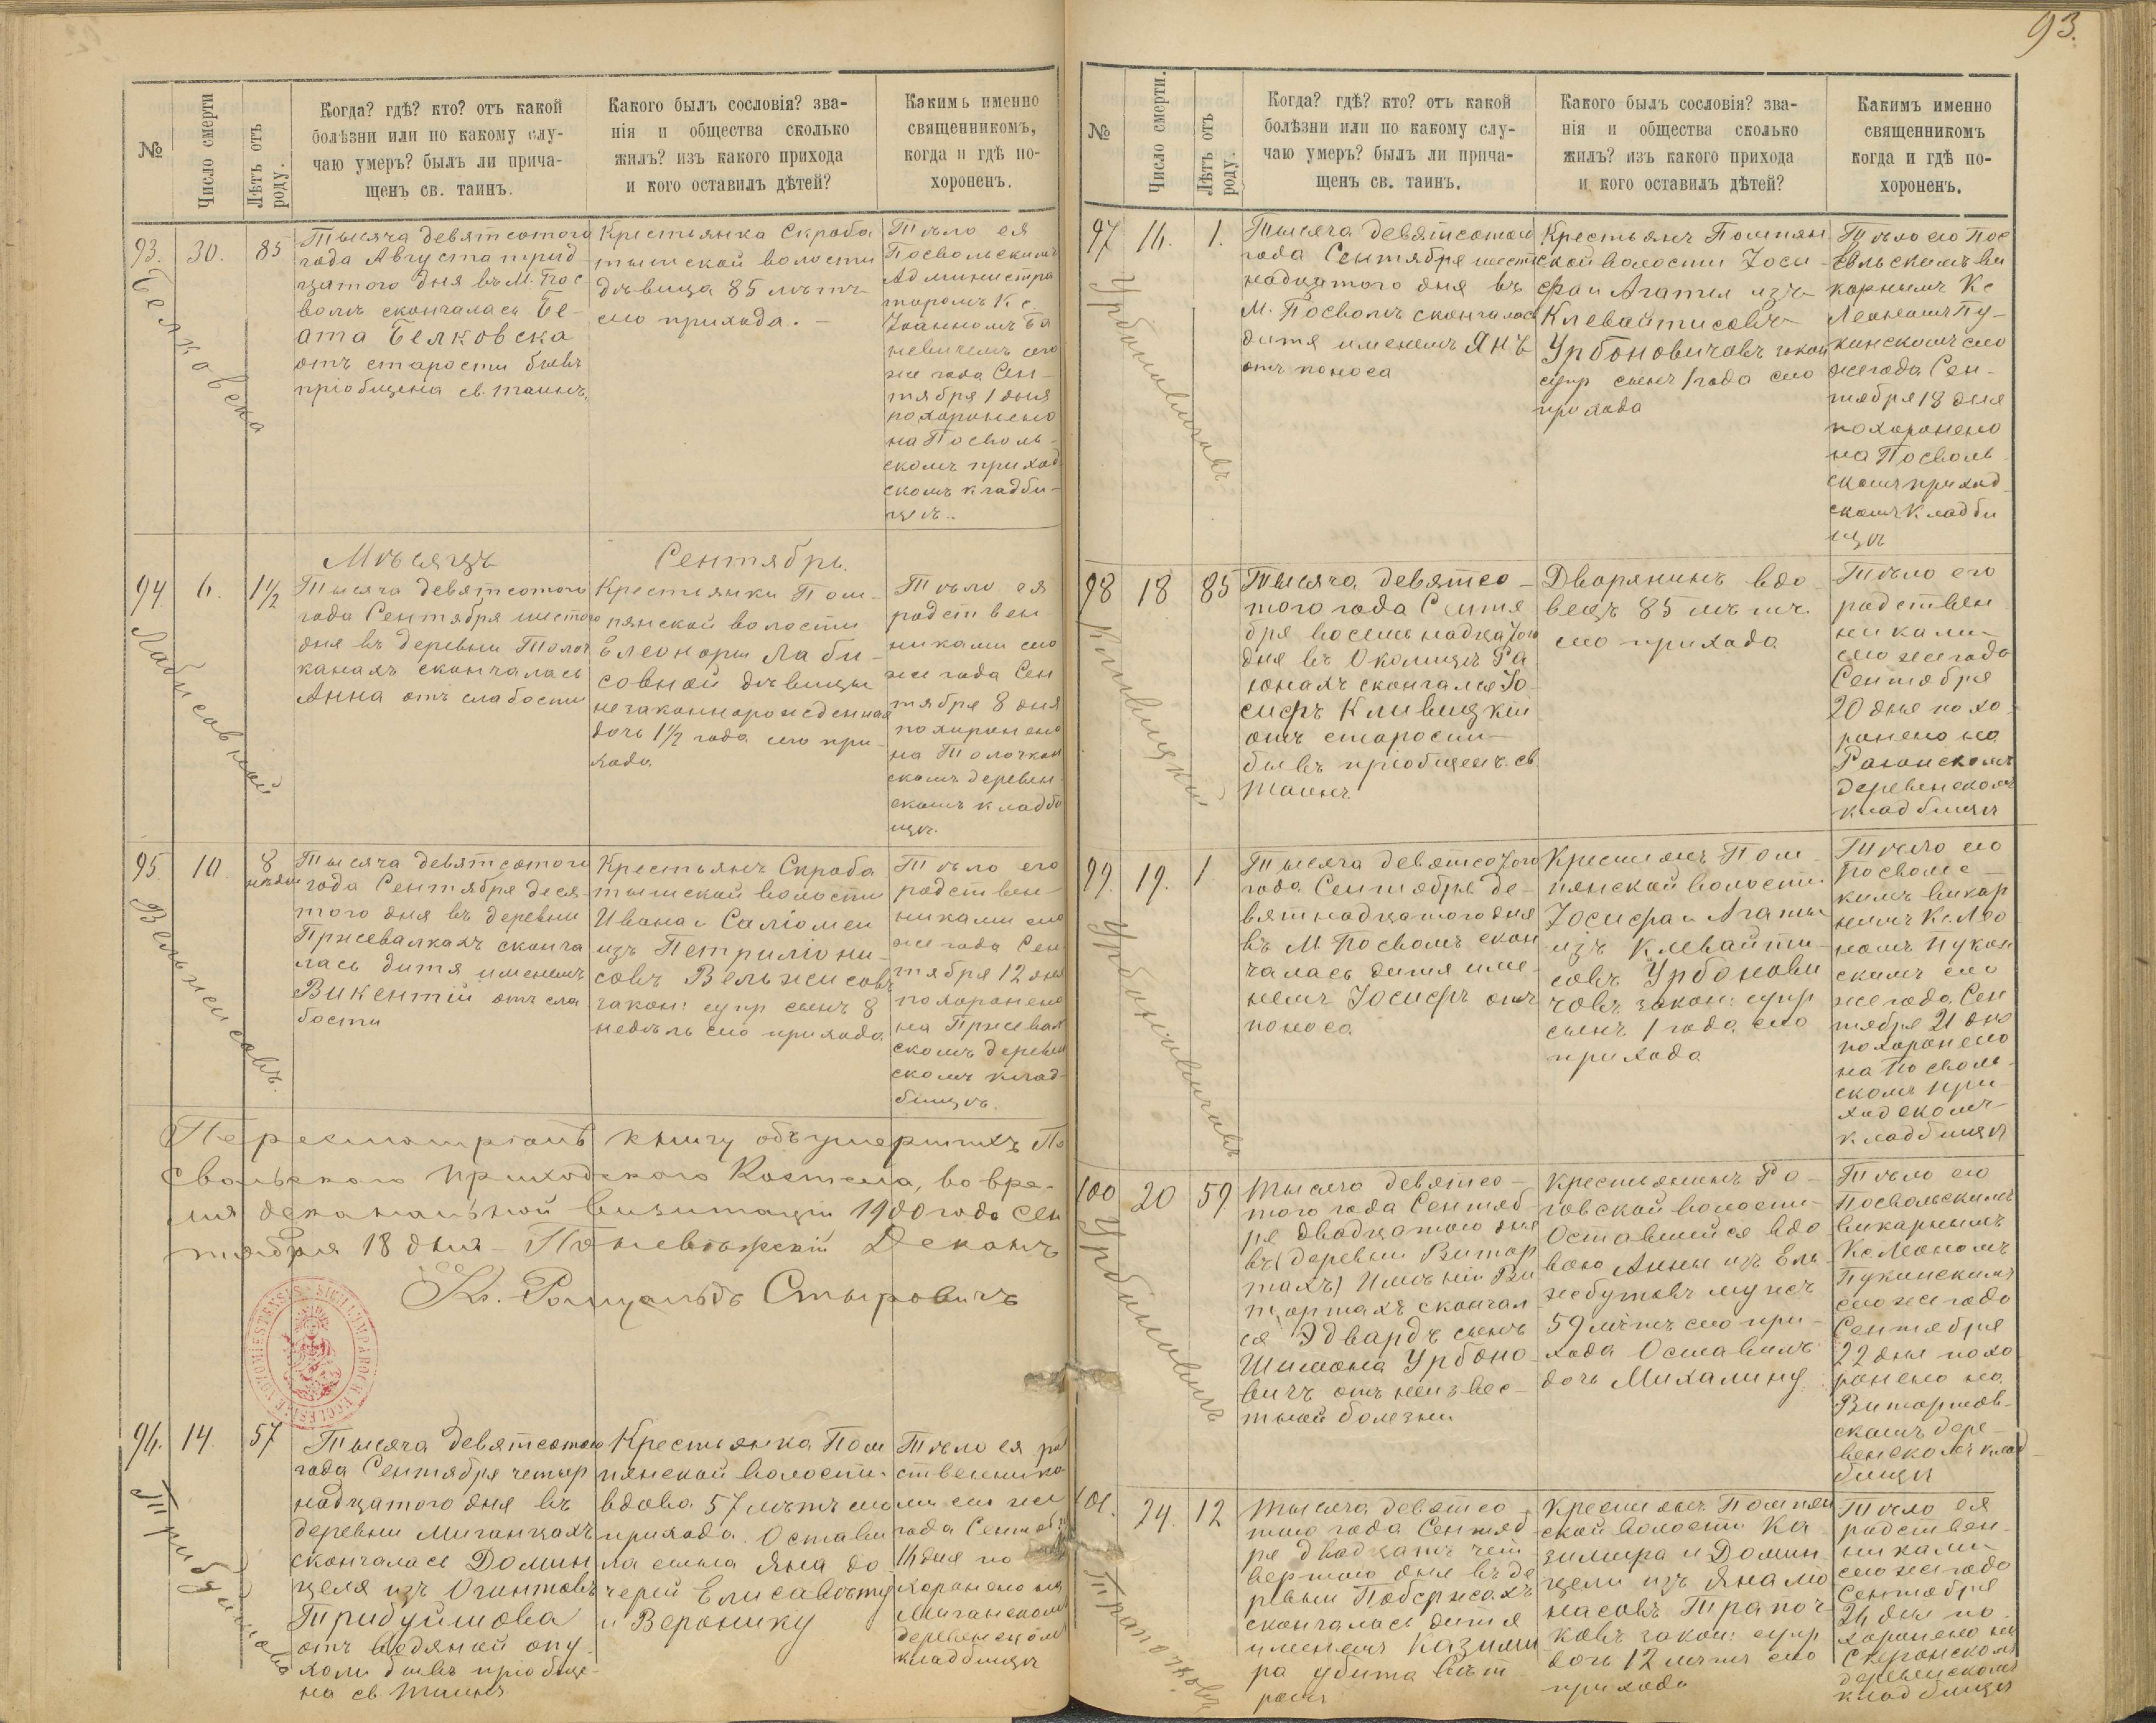 93.
№
Число смерти
Лѣтъ отъ роду.
Когда? гдѣ? кто? отъ какой
болѣзни или по какому слу-
чаю умеръ? былъ ли прича-
щенъ св. таинъ.
Какого былъ сословія? зва-
нія и общества сколько
жилъ? изъ какого прихода
и кого оставилъ дѣтей?
Какимъ именно
священникомъ,
когда и гдѣ по-
хороненъ.
93.
30.
85
Белковска
Тысяча девятсотого
года Августа трид
цатого дня въ М. Пос
волѣ скончалась Бе-
ата Белковска
отъ старости бывъ
пріобщена св. таинъ.
Крестьянка Скроба
тышской волости
дѣвица 85 лѣтъ
сего прихода. –
Тѣло ея
Посвольскимъ
Администра
торомъ Кс
Іоанномъ Ба
невичемъ сего
же года Сен-
тября 1 дня
похоронено
на Посволь-
скомъ приход
скомъ кладби-
щѣ..
Мѣсяцъ Сентябрь.
94.
6.
1 1/2
Лабисовной
Тысяча девятсотого
года Сентября шестого
дня въ деревни Толоч
канахъ скончалась
Анна отъ слабости
Крестьянки Пом-
пянской волости
Елеоноры Лаби-
совной дѣвицы
незаконнорожденная
дочь 1 1/2 года сего при-
хода
Тѣло ея
родствен-
никами сего
же года Сен
тября 8 дня
похоронено
на Толочкан
скомъ деревен-
скомъ кладби
щѣ.
95.
10.
8
недѣл
Вельжисовъ.
Тысяча девятсотого
года Сентября деся-
того дня въ деревни
Пржевалкахъ сконча
лась дитя именемъ
Викентій отъ сла
бости
Крестьянъ Скроба
тышской волости
Ивана и Саломеи
изъ Петриліони-
совъ Вельжисовъ
закон: супр сынъ 8
недѣль сего прихода
Тѣло его
родствен-
никами сего
же года Сен
тября 12 дня
похоронено
на Пржевал
скомъ деревен
скомъ клад-
бищѣ.
Пересмотрѣлъ книгу объ умершихъ По
свольскаго приходскаго Костела, во вре-
мя деканальной визитаціи 1900 года Сен
тября 18 дня – Поневѣжскій Деканъ
Кс. Ромуальдъ Стыровичъ
96.
14.
57
Трибуймова
Тысяча девятсотого
года Сентября четыр
надцатого дня въ
деревни Миганцахъ
скончалась Домин
целя изъ Огинтовъ
Трибуймова
отъ водяной опу
холи бывъ пріобще-
на св. таинъ
Крестьянка Пом
пянской волости
вдова 57 лѣтъ сего
прихода. Остави
ла сына Яна до
черей Елисавѣту
и Веронику
Тѣло ея род
ственника
ми сего же
года Сентяб
16 дня по
хоронено на
Миганском
деревенском
кладбищѣ
№
Число смерти.
Лѣтъ отъ роду.
Когда? гдѣ? кто? отъ какой
болѣзни или по какому слу-
чаю умеръ? былъ ли прича-
щенъ св. таинъ.
Какого былъ сословія? зва-
нія и общества сколько
жилъ? изъ какого прихода
и кого оставилъ дѣтей?
Какимъ именно
священникомъ
когда и гдѣ по-
хороненъ.
97
16.
1.
Урбоновичовъ
Тысяча девятсотого
года Сентября шест
надцатого дня въ
М. Посволѣ скончалась
дитя именемъ Янъ
отъ поноса
Крестьянъ Помпян
ской волости Іоси-
фа и Агаты изъ
Клевайтисовъ
Урбоновичовъ закон
супр сынъ 1 года сего
прихода
Тѣло его Пос
вольскимъ ви
карнымъ Кс
Леономъ Пу-
кинскимъ сего
же года Сен-
тября 18 дня
похоронено
на Посволь
скомъ приход
скомъ кладби
щѣ
98
18
85
Кливицкій
Тысяча девятсо-
того года Сентя
бря восемьнадцатого
дня въ Околицѣ Ра
юнахъ скончался Іо-
сифъ Кливицкій
отъ старости
бывъ пріобщенъ св.
таинъ.
Дворянинъ вдо
вецъ 85 лѣтъ.
сего прихода
Тѣло его
родствен
никами
сего же года
Сентября
20 дня похо
ронено на
Раюнскомъ
деревенскомъ
кладбищѣ
99.
19.
1
Урбоновичовъ
Тысяча девятсотого
года Сентября де-
вятнадцатого дня
въ М. Посволѣ скон
чалась дитя име-
немъ Іосифъ отъ
поноса
Крестьянъ Пом
пянской волости
Іосифа и Агаты
изъ Клевайти-
совъ Урбонови
човъ закон: супр
сынъ 1 года сего
прихода
Тѣло его
Посвольс-
кимъ викар
нымъ Кс Лео
номъ Пукин
скимъ сего
же года Сен
тября 21 дня
похоронено
на Посволь-
скомъ при-
ходскомъ
кладбищѣ
100
20
59
Урбоновичъ
Тысяча девятсо-
того года Сентяб
ря двадцатого дня
въ (деревни Витор
тахъ) Имѣніи Ви
тортахъ скончал
ся Эдвардъ сынъ
Шимона Урбоно
вичъ отъ неизвес-
тной болезни
Крестьянинъ Ро-
говской волости
Оставшейся вдо
вою Анны изъ Ель
жбутовъ мужъ
59 лѣтъ сего при-
хода Оставилъ
дочь Михалину
Тѣло его
Посвольскимъ
викарнымъ
Кс Леономъ
Пукинскимъ
сего же года
Сентября
22 дня похо
ронено на
Витортов-
скомъ дере-
венскомъ клад-
бищѣ
101.
24.
12
Трапочковъ
Тысяча девятсо
того года Сентяб
ря двадцать чет
вертого дня въ де
ревни Побержахъ
скончалась дитя
именемъ Казими
ра убита вѣт
ромъ
Крестьянъ Помпян
ской волости Ка
зимира и Домин
цели изъ Янамо
насовъ Трапоч
ковъ закон: супр
дочь 12 лѣтъ сего
прихода
Тѣло ея
родствен-
никами
сего же года
Сентября
26 дня по
хоронено на
деревенскомъ
кладбищѣ